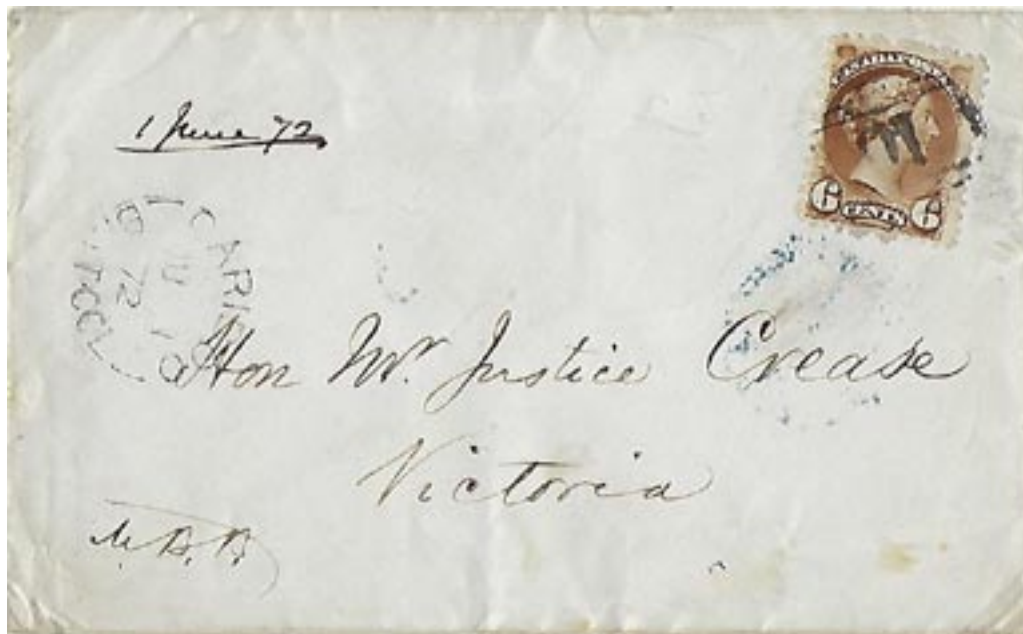 1 June 72
CANADA POSTAGE
6 CENTS 6
CARI
JU
72
BRIT COL
Hon Mr. Justice Crease
Victoria
M. B. B.